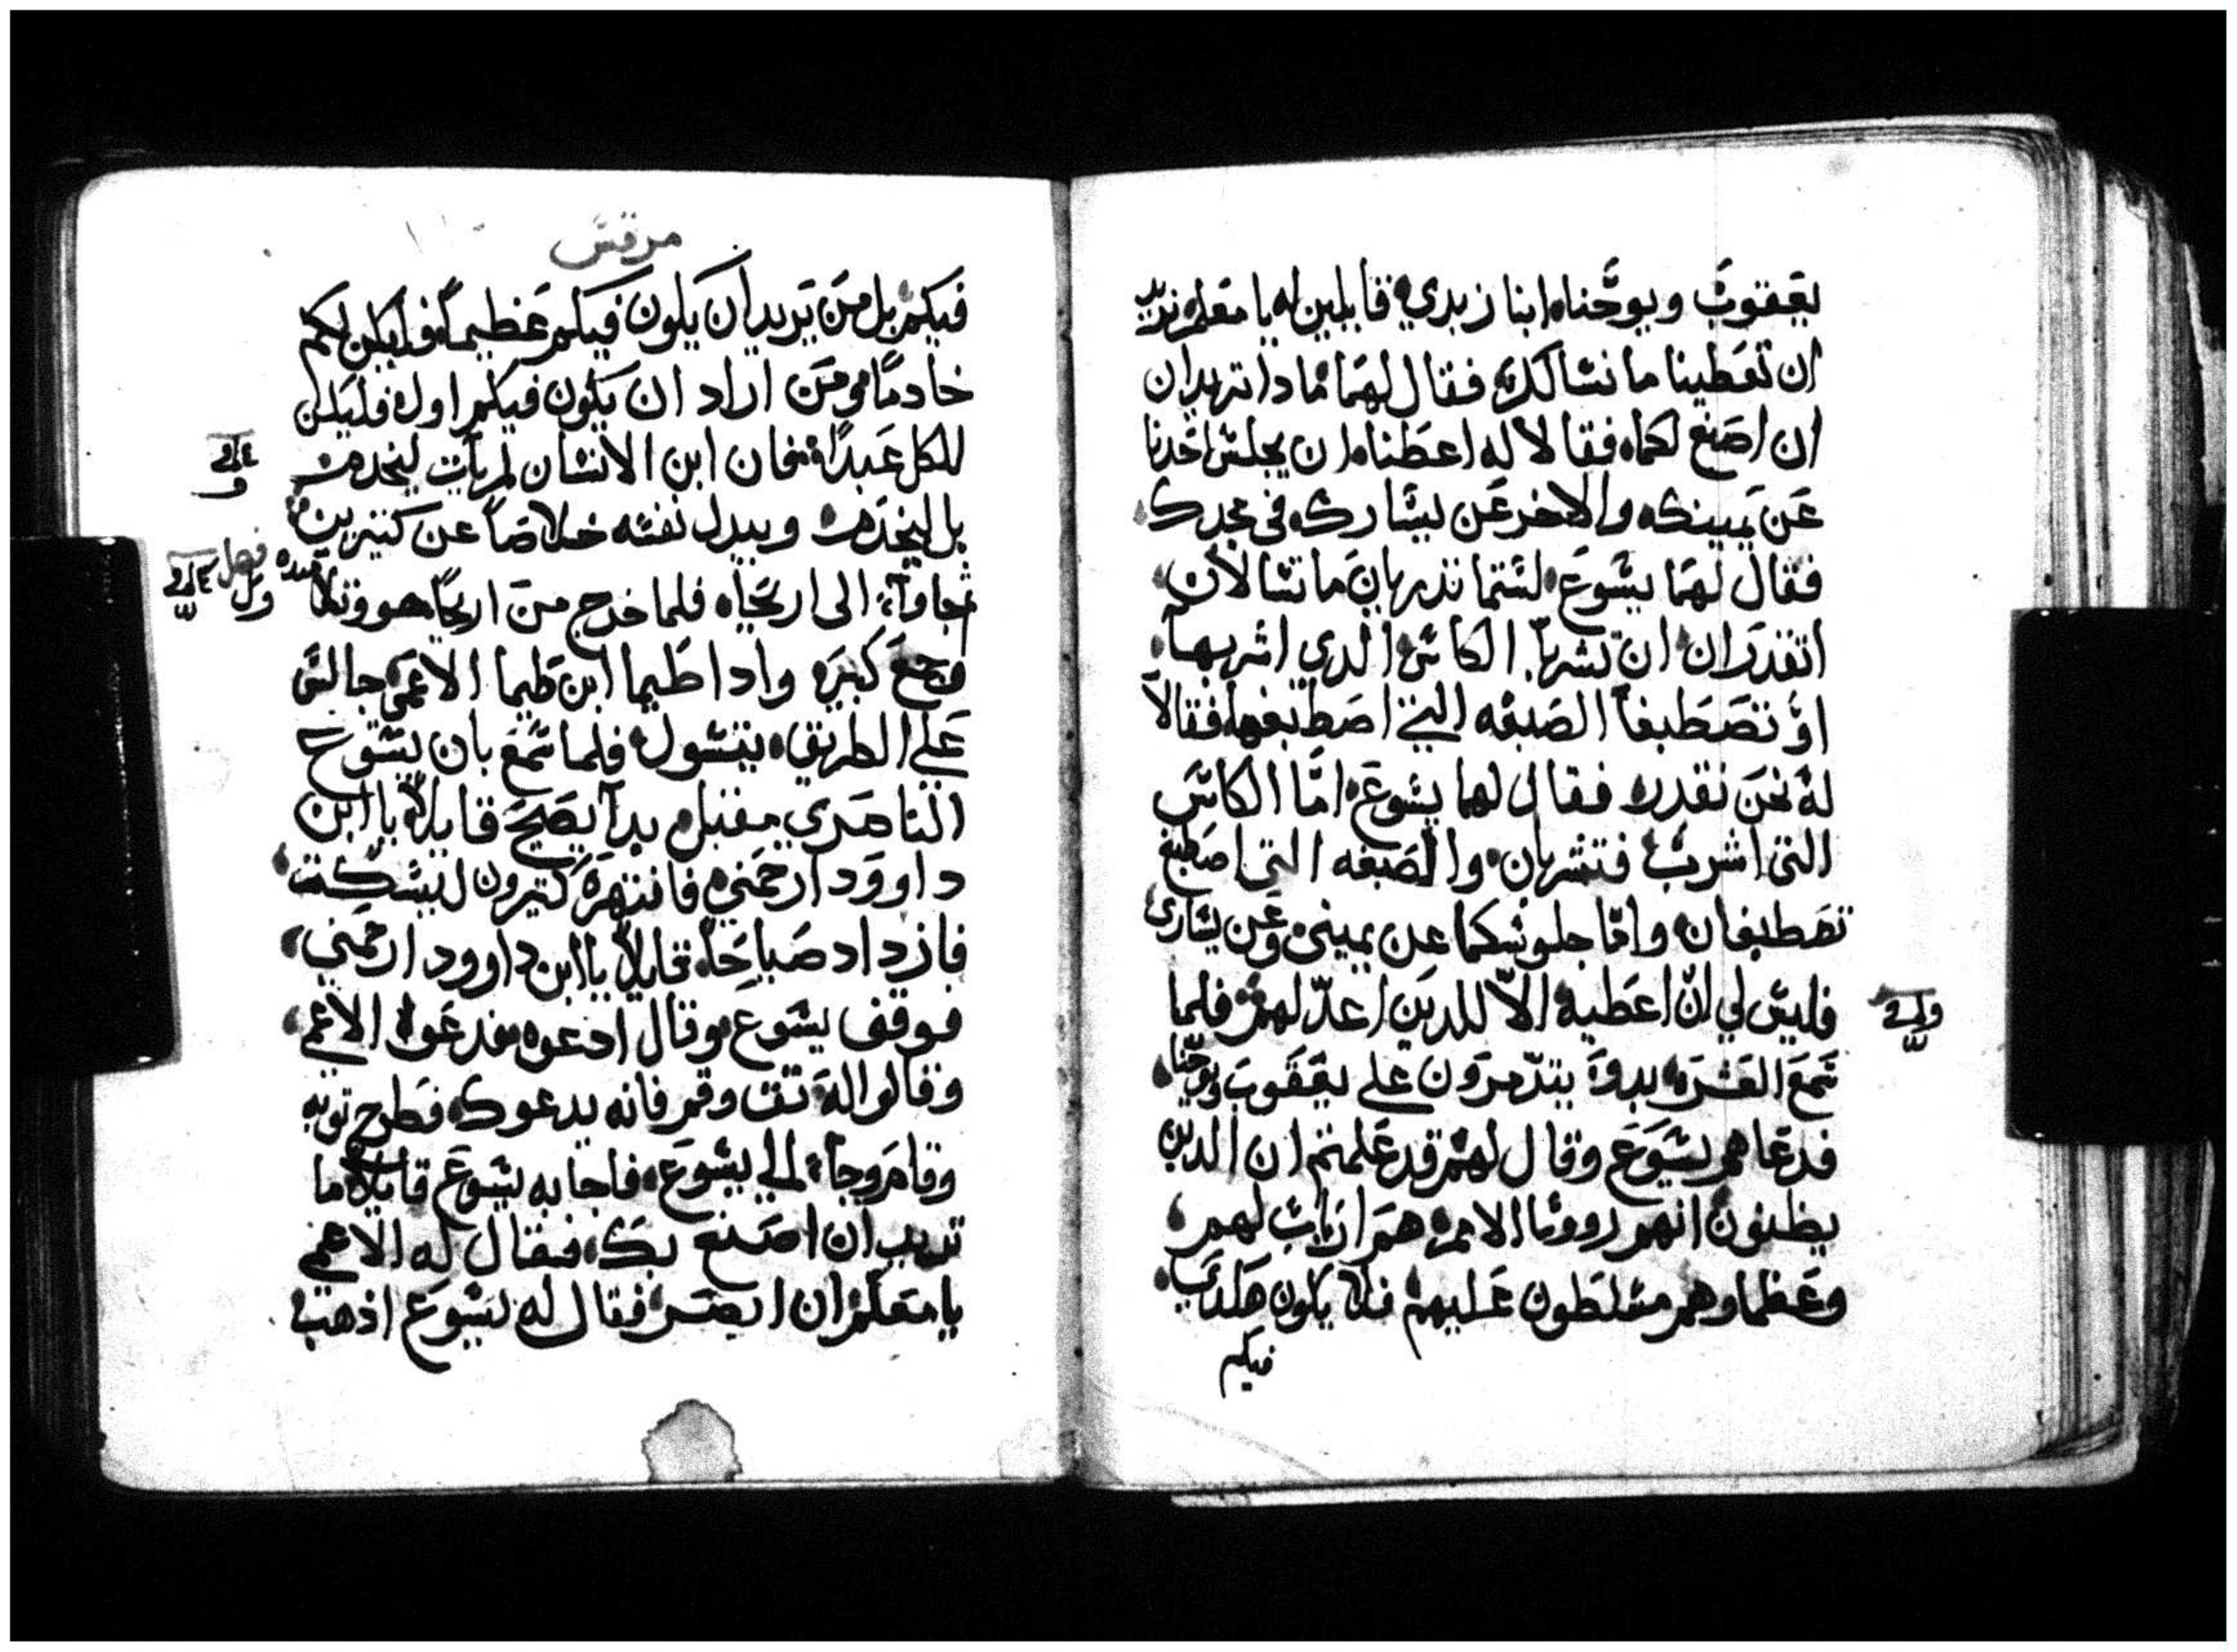 يعقوب ويوحنا ابنا زبدي قايلين له يا معلم نريد
ان تعطينا ما نسالك فقال لهما مادا تريدان
ان اصنع لكما فقالا له اعطنا ان يجلس احدنا
عن يمينك والاخر عن يسارك في مجدك
فقال لهما يسوع لستما تدريان ما تسالان
اتقدران ان تشربا الكاس الدي اشربها
او تصطبغا الصبغه التي اصطبغها فقالا
له نحن نقدر فقال لهما يسوع اما الكاس
التي اشرب فتشربان والصبغه التي اصطبغ
تصطبغان واما جلوسكما عن يميني وعن يساري
فليس لي ان اعطيه الا للدين اعد لهم فلما
سمع العشره بدوا يتدمرون على يعقوب ويوحنا
فدعاهم يسوع وقال لهم قد علمتم ان الدين
يظنون انهم رووسا الامم هم ارباب لهم
وعظماوهم مسلطون عليهم فلا يكون هكدا
فيكم
مرقس
فيكم بل من يريد ان يكون فيكم عظيما فليكن لكم
خادما ومن اراد ان يكون فيكم اولا فليكن
للكل عبدا فان ابن الانسان لم يات ليخدم
بل ليخدم ويبدل نفسه خلاصا عن كثيرين
ثم جاوا الى اريحا فلما خرج من اريحا هو وتلاميده
وجمع كبيره وادا طيما ابن طيما الاعمى جالس
على الطريق يتسول فلما سمع بان يسوع
الناصري مقبل بدا يصيح قايلا يا ابن
داوود ارحمني فانتهره كتيرون ليسكت
فازداد صياحا قايلا يا ابن داوود ارحمني
فوقف يسوع وقال ادعوه فدعوا الاعمى
وقالوا له تق وقم فانه يدعوك فطرح توبه
وقام وجا الى يسوع فاجابه يسوع قايلا ما
تريد ان اصنع بك فقال له الاعمى
يا معلم ان ابصر فقال له يسوع اذهب